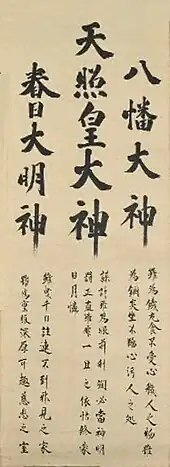 八幡大神
雖為鐵丸食不受心穢人之物雖
為銅炎坐不臨心汚人之処
天照皇大神
謀計雖為眼前利潤必當神明
罸正直雖非一旦之依怙終蒙
日月憐
春日大明神
雖曳千日注連不到邪見之家
雖為重服深厚可趣慈悲之室